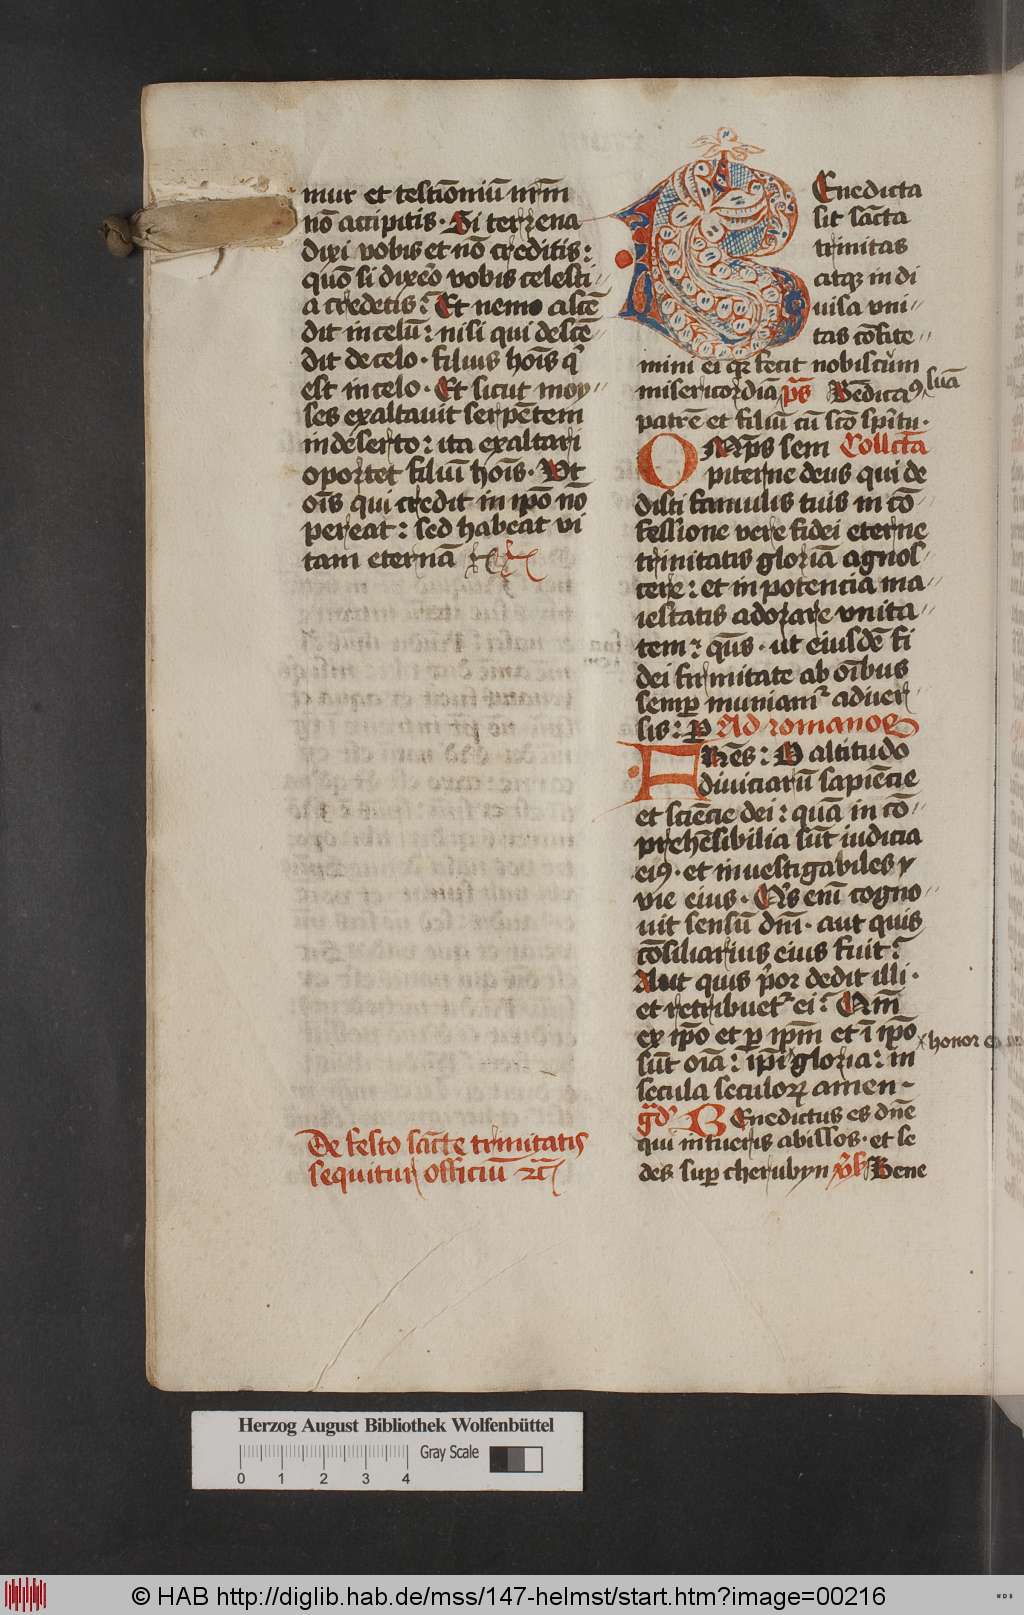 mur et testiōniū nr̄m
nō accipitis · Si terrena
dixi vobis et nō creditis :
quō si dixēo vobis celesti
a credetis : Et nemo ascē
dit in celū : nisi qui descē
dit de celo · filius hoīs q̄
est in celo · Et sicut moy
ses exaltavit serpētem
in deserto : ita exaltari
oportet filiū hoīs · Vt
oīs qui credit in ip̄o nō
pereat : sed habeat vi
tam eternā
De festo sāctē trinitatis
sequitur officiū
BEnedicta
sit sācta
trinitas
atqꝫ in di
uisa vni
tas cōfite
mini ei qꝛ fecit nobiscum
misericordiā suā p̄s Bn̄dicaꝰ
patrē et filiū cū scō sp̄itu ·
OMp̄s sem Collcta
piterne deus qui de
disti famulis tuis in cō
fessione vere fidei eterne
trinitatis gloriā agnos
cere : et in potencia ma
iestatis adorare vnita
tem : qs̄ · ut eiusdē fi
dei firmitate ab oībus
semꝑ muniamᷣ aduer
sis : ꝑ Ad romanoꝝ
FRēs : O altitudo
diuiciarū sapiēcie
et sciēcie dei : quā in cō
prehēsibilia sūt iudicia
eiꝰ · et inuestigabiles
vie eius · Qis enī cogno
uit sensū dn̄i · aut quis
cōsiliarius eius fuit :
Aut quis p̄or dedit illi ·
et retribuetᷣ ei : Qm̄
ex ip̄o et ꝑ ip̄m et ī ip̄o
sūt oīa : ip̄i honor gloria : in
secula seculoꝝ amen
gd̄ BEnedictus es dn̄e
qui intueris abissos · et se
des suꝑ cherubyn v̄s Bene
Herzog August Bibliothek Wolfenbüttel
Gray Scale
0 1 2 3 4
© HAB http://diglib.hab.de/mss/147-helmst/start.htm?image=00216